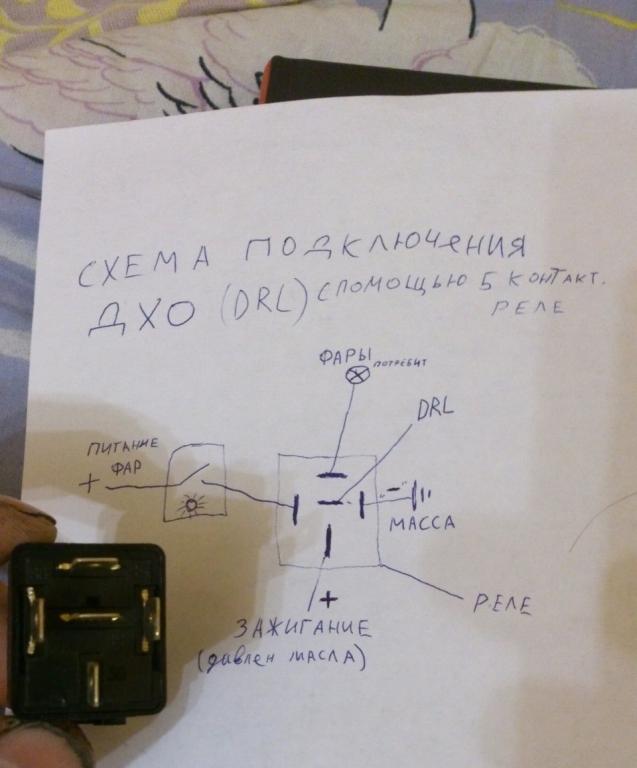 СХЕМА ПОДКЛЮЧЕНИЯ
ДХО (DRL) С ПОМОЩЬЮ 5 КОНТАКТ.
РЕЛЕ
ФАРЫ ПОТРЕБИТ
DRL
ПИТАНИЕ
ФАР
+
-
МАССА
+
РЕЛЕ
ЗАЖИГАНИЕ
(давлен МАСЛА)